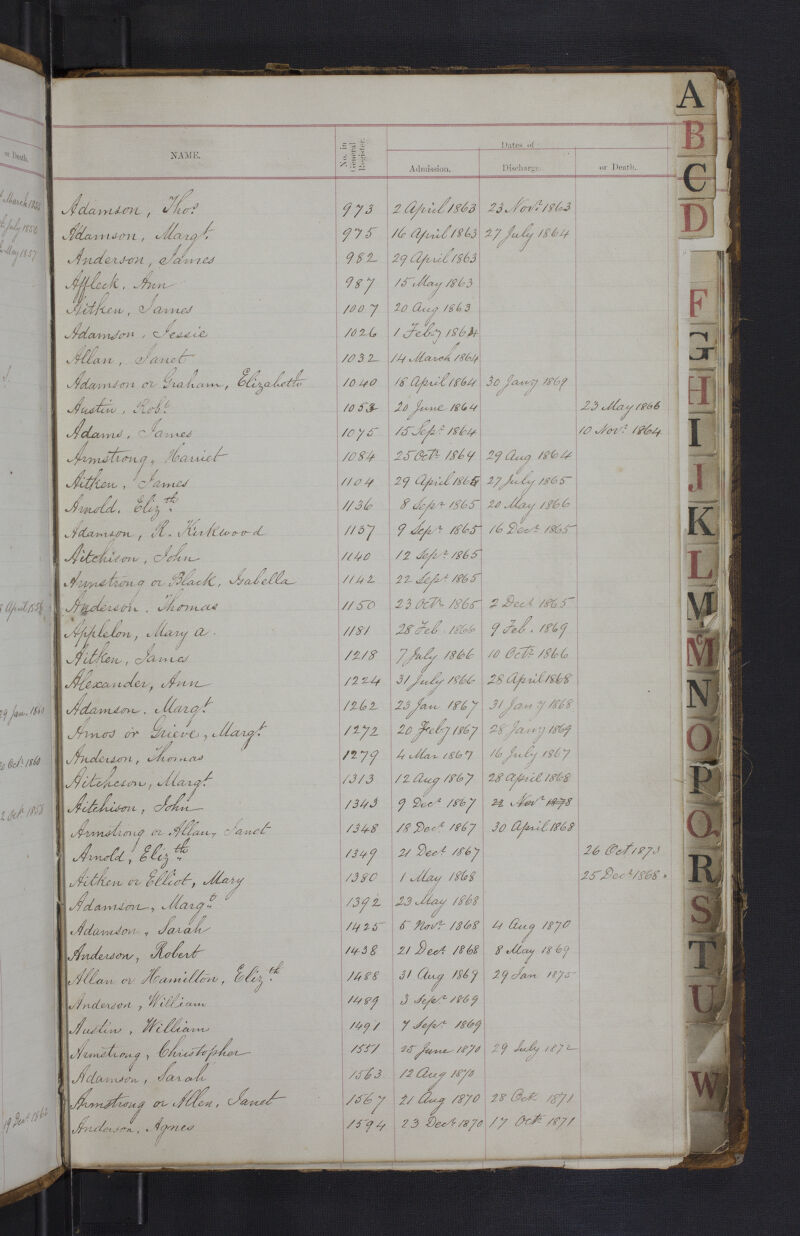 or Death.
March 1856
July 1856
May 1857
April 1856
29 Jan. 1860
Oct. 1860
2 Oct. 1858
19 Dec. 1862
NAME.
No. in General Register.
Dates of
Admission.
Discharge.
or Death.
Adamson, Thos. 973 2 April 1863 23 Novr. 1863
Adamson, Margt. 975 16 April 1863 27 July 1864
Anderson, James 982 29 April 1863
Affleck, Ann 987 15 May 1863
Aitken, James 1007 20 Aug 1863
Adamson, Jessie 1026 1 Feby 1864
Allan, Janet 1032 14 March 1864
Adamson or Graham, Elizabeth 1040 18 April 1864 30 Jany 1869
Austin, Robt. 1053 20 June 1864 23 May 1866
Adams, James 1075 15 Sepr. 1864 10 Novr. 1864
Armstrong, Harriet 1084 25 Octr. 1864 29 Aug 1864
Aitken, James 1104 29 April 1865 27 July 1865
Arnold, Elizth. 1136 8 Sepr 1865 20 May 1866
Adamson, R. Kirkwood 1137 9 Sepr 1865 16 Decr. 1865
Aitchison, John 1140 12 Sepr. 1865
Armstrong or Black, Isabella 1142 22 Sept 1865
Anderson, Thomas 1150 23 Octr. 1865 2 Dect 1865
Appleton, Mary A. 1181 28 Feb. 1866 9 Feb. 1869
Aitken, James 1218 7 July 1866 10 Octr. 1866
Alexander, Ann 1224 31 July 1866 28 April 1868
Adamson, Margt. 1262 23 Jan 1867 31 Jany 1868
Amos or Grieve, Margt. 1272 20 Feby 1867 28 Jany 1869
Anderson, Thomas 1279 4 Mar 1867 16 July 1867
Aitcheson, Margt. 1313 12 Aug 1867 28 April 1868
Aitchison, John 1343 9 Decr. 1867 22 Novr 1878
Armstrong or Allan, Janet 1348 18 Decr. 1867 30 April 1868
Arnold, Elizth. 1349 21 Dect 1867 26 Oct 1873
Aitken or Elliot, Mary 1380 1 May 1868 25 Decr 1868.
Adamson, Margt. 1392 23 May 1868
Adamson, Sarah 1425 5 Novr. 1868 4 Aug 1870
Anderson, Robert 1438 21 Dect. 1868 8 May 1869
Allan or Hamilton, Elizth. 1488 31 Aug 1869 29 Jan 1875
Anderson, William 1489 3 Sepr. 1869
Austin, William 1491 7 Sepr 1869
Armstrong, Christopher 1551 25 June 1870 29 July 1872
Adamson, Sarah 1563 12 Aug 1870
Armstrong or Allen, Janet 1567 21 Aug 1870 28 Oct 1871
Anderson, Agnes 1594 23 Decr 1870 17 Octr 1871
A
B
C
D
F
G
H
I
J
K
L
M
Mc
N
O
P
Q
R
S
T
U
W